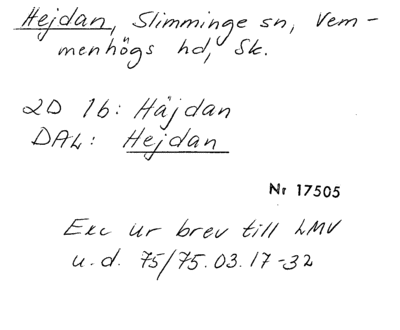 Hejdan, Slimminge sn, Vem-
menhögs hd, Sk.
2D 1b: Häjdan
DAL: Hejdan
Nr 17505
Exc ur brev till LMV
u.d. 75/75.03.17-32